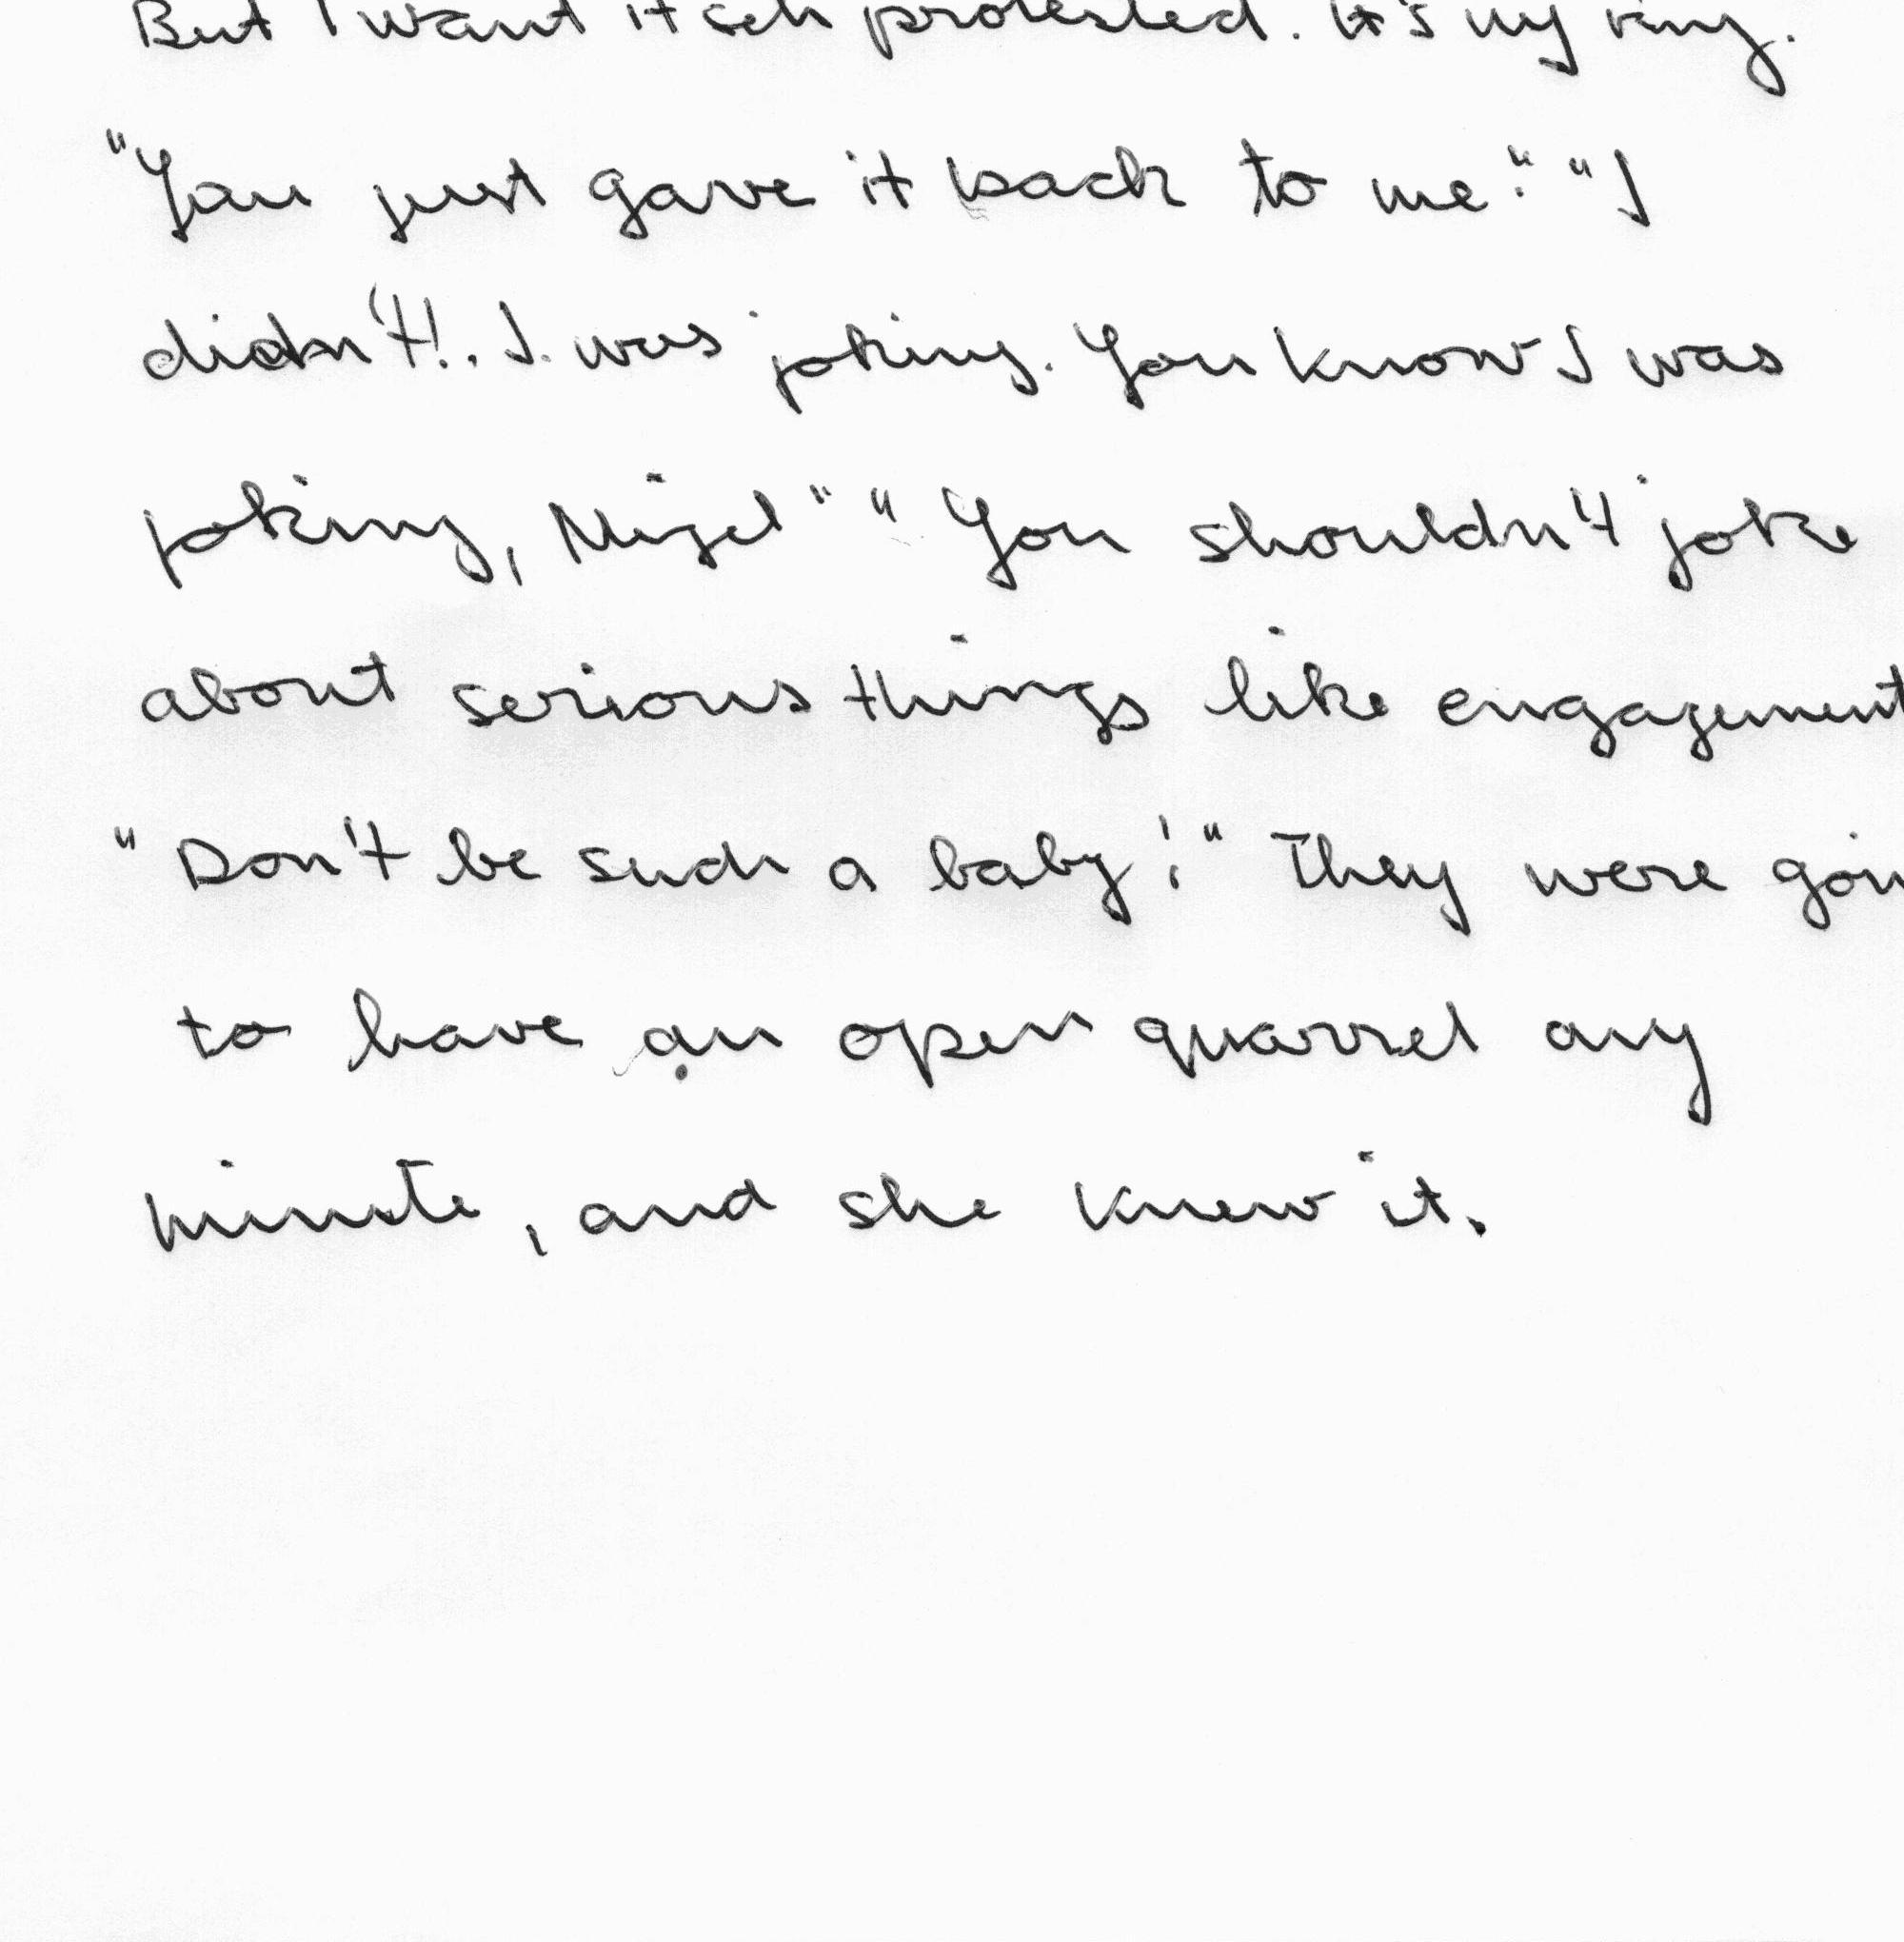 But I want it protested. It's my ring.
"You just gave it back to me." "I
didn't!. I. was joking. You know I was
joking, Nigel" "You shouldn't joke
about serious things like engagement
"Don't be such a baby!" They were goin
to have an open quarrel any
minute, and she knew it.